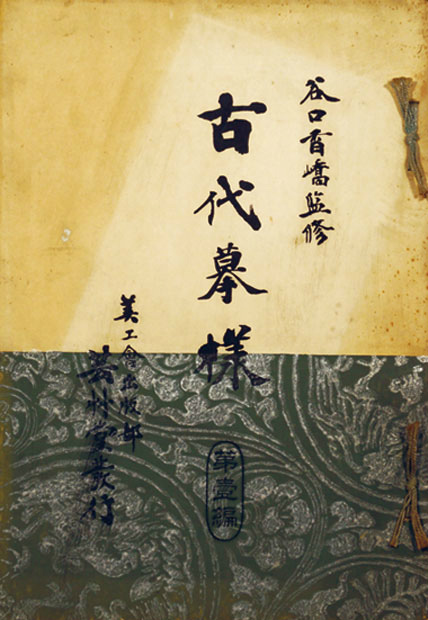 谷口香嶠監修
古代摹樣
第壹編
美工會出版部
芸艸堂發行